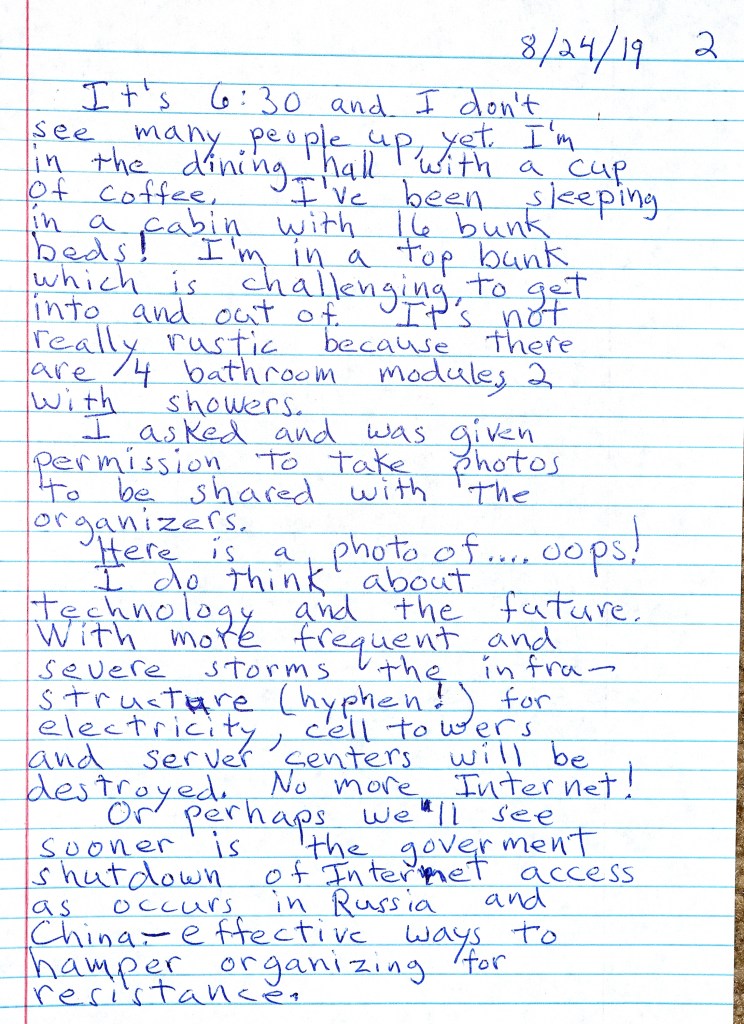 8/24/19 2
It's 6:30 and I don't
see many people up, yet. I'm
in the dining hall with a cup
of coffee. I've been sleeping
in a cabin with 16 bunk
beds! I'm in a top bunk
which is challenging to get
into and out of. It's not
really rustic because there
are 4 bathroom modules, 2
with showers.
I asked and was given
permission to take photos
to be shared with the
organizers.
Here is a photo of.... oops!
I do think about
technology and the future.
With more frequent and
severe storms the infra-
structure (hyphen!) for
electricity, cell towers
and server centers will be
destroyed. No more Internet!
Or perhaps we'll see
sooner is the goverment
shutdown of Internet access
as occurs in Russia and
China - effective ways to
hamper organizing for
resistance.